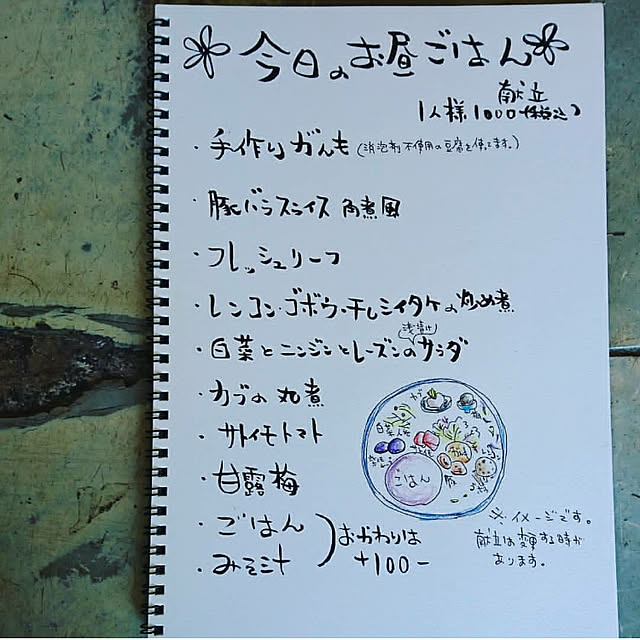 今日のお昼ごはん
献立
1人様1000(税込)
・手作りがんも(消泡剤不使用の豆腐を使ってます。)
・豚バラスライス 角煮風
・フレッシュリーフ
・レンコン・ゴボウ・干しシイタケの炒め煮
浅漬け
・白菜とニンジンとレーズンのサラダ
・カブの丸煮
・サトイモトマト
・甘露梅
・ごはん
・みそ汁
おかわりは
+100-
ごはん
※イメージです。
献立は変更する時が
あります。